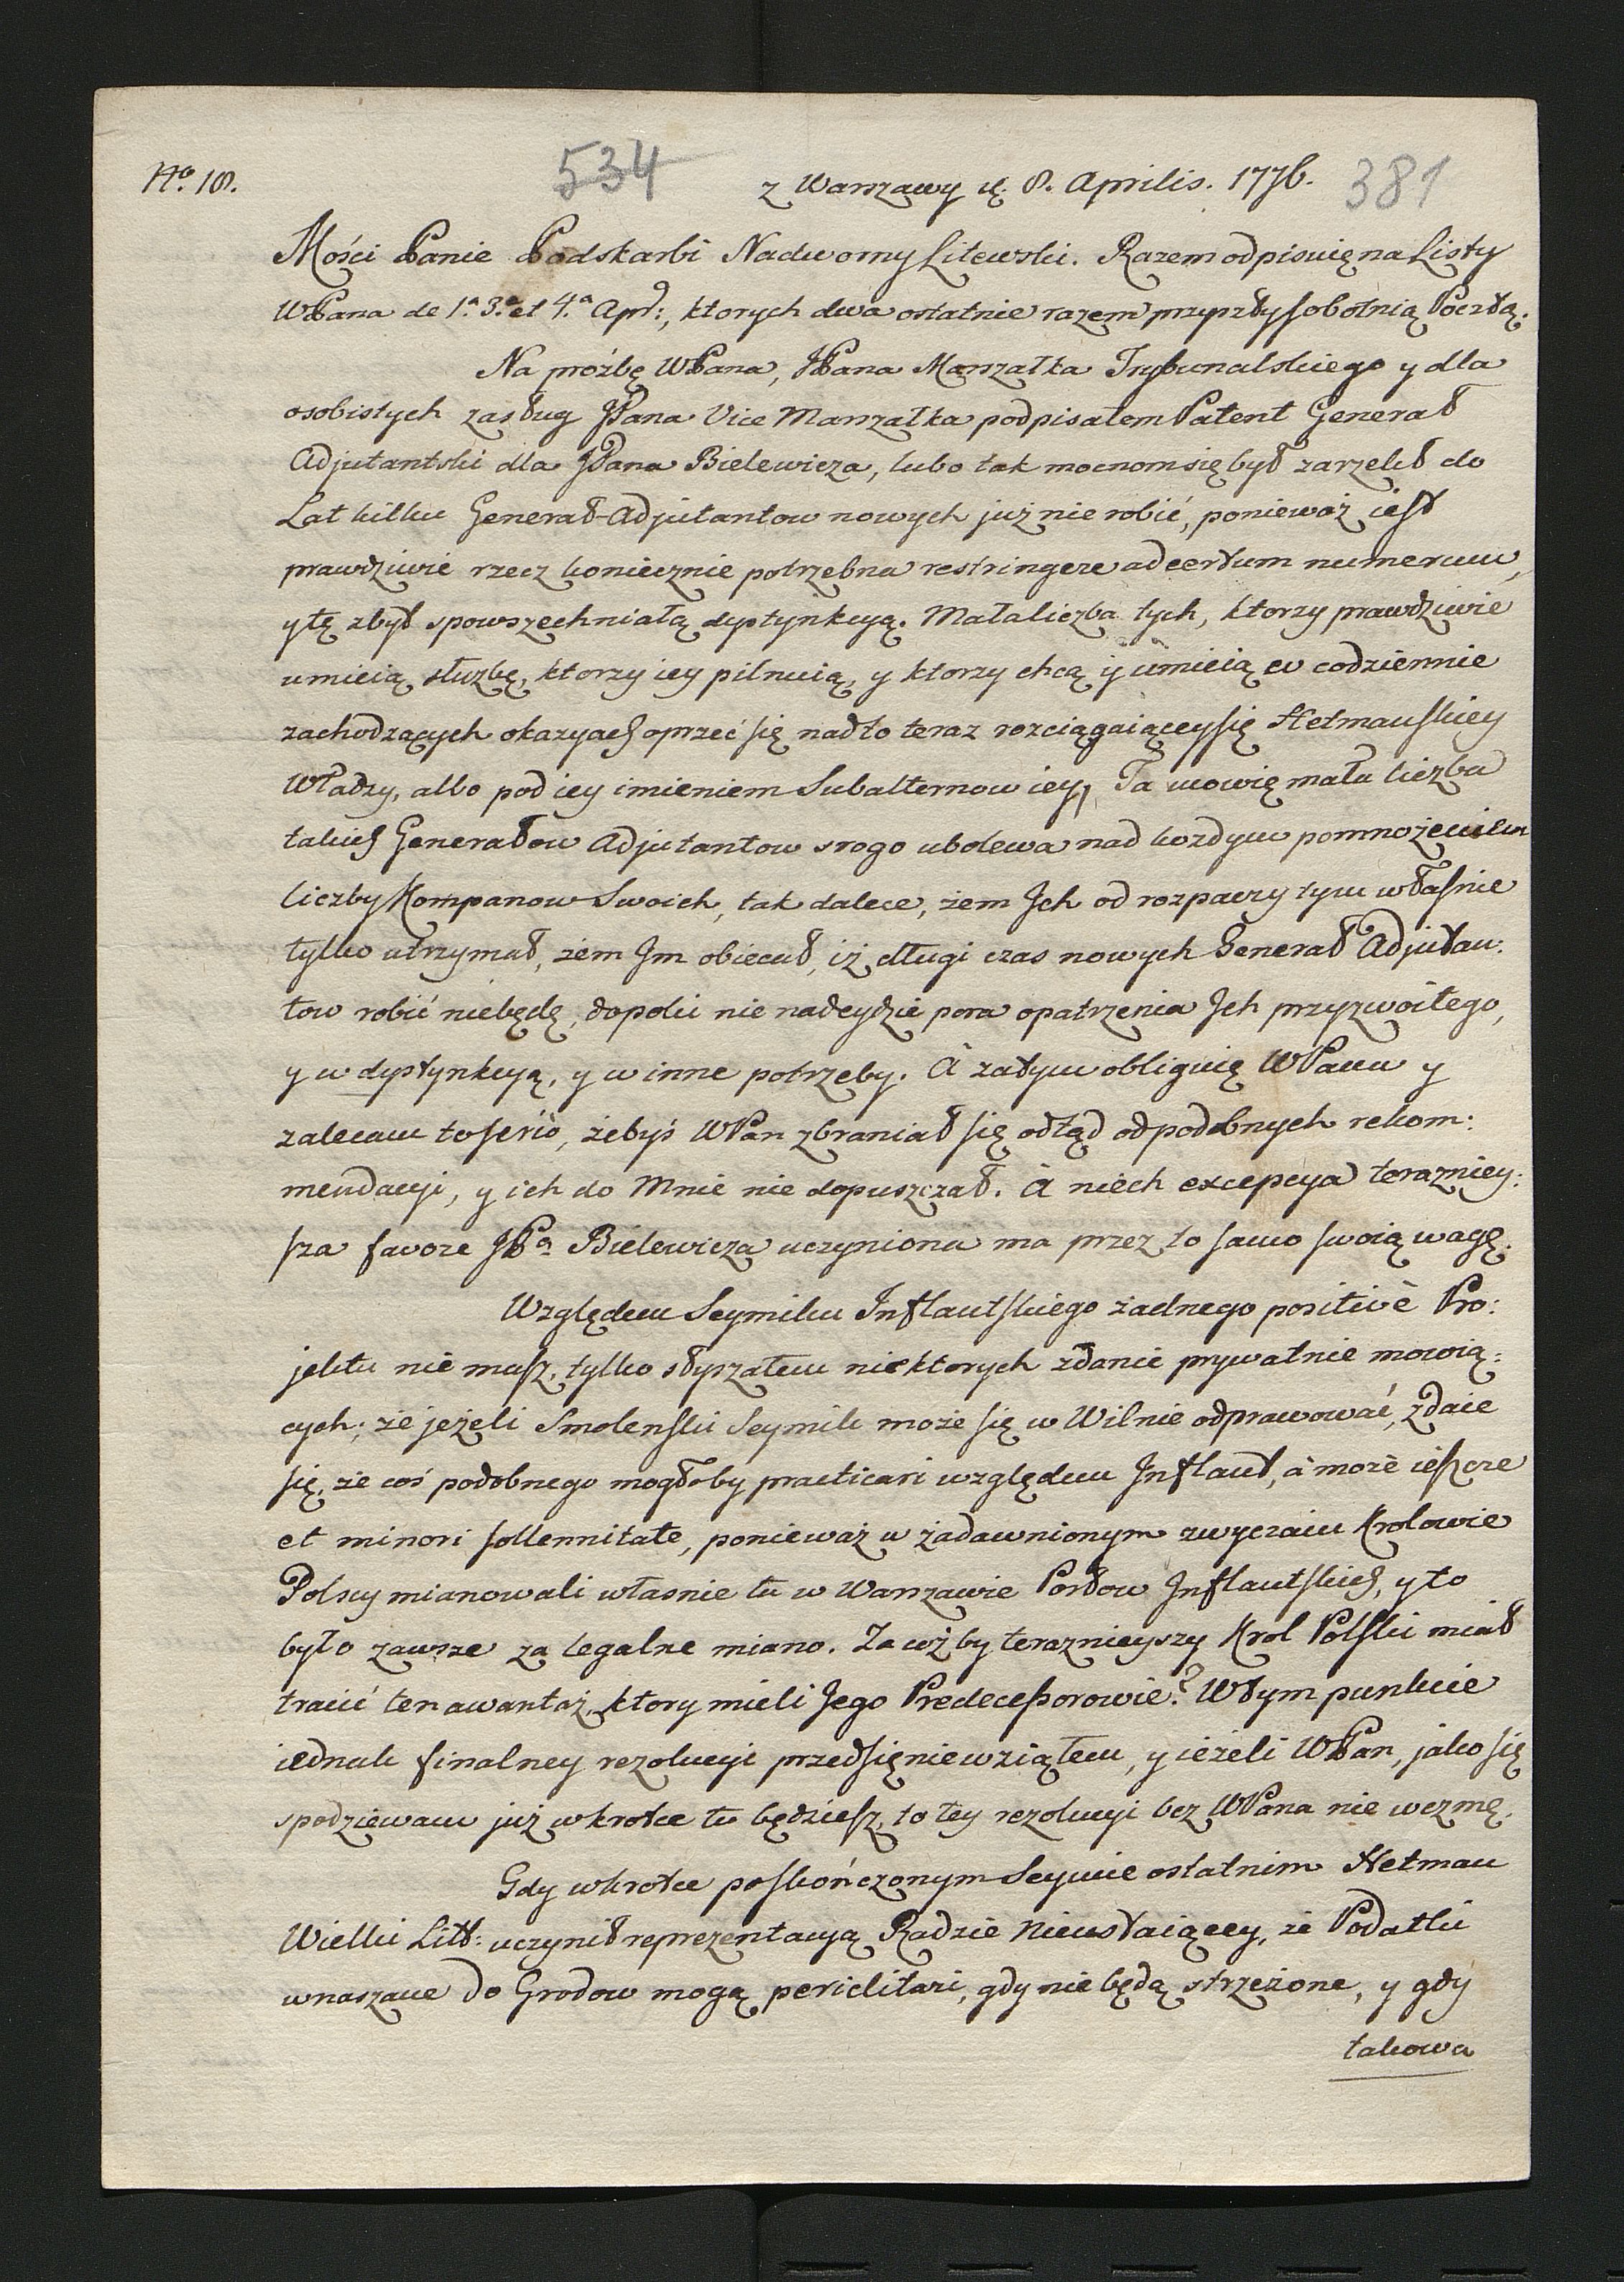 No. 18.
534
z Warszawy d. 8. Aprilis. 1776.
381
Mości Panie Podskarbi Nadworny Litewski. Razem odpisuię na Listy
WPana de 1.a 3.a et 4.a Apr:, ktorych dwa ostatnie razem przyszły sobotnią Pocztą.
Na prożbę WPana, JPana Marszałka Trybunalskiego y dla
osobistych zasług JPana Vice Marszałka podpisałem Patent Generał
Adjutantski dla JPana Bielewicza, lubo tak mocnom się był zarzekł do
Lat kilku Generał-Adjutantow nowych już nie robić, ponieważ iest
prawdziwie rzecz koniecznie potrzebna restringere ad certum numerum,
y tę zbyt spowszechniałą dystynkcyą. Mała liczba tych, ktorzy prawdziwie
umieią służbę, ktorzy iey pilnuią, y ktorzy chcą y umieią w codziennie
zachodzących okazyach oprzeć się nadto teraz rozciągaiącey się Hetmanskiey
Władzy, albo pod iey imieniem Subalternow iey, Ta mowię mała liczba
takich Generałow Adjutantow srogo ubolewa nad każdym pomnożeniem
liczby Kompanow Swoich, tak dalece, żem Jch od rozpaczy tym własnie
tylko utrzymał, żem Jm obiecał, iż długi czas nowych Generał Adjutan:
tow robić niebędę, dopoki nie nadeydzie pora opatrzenia Jch przyzwoitego,
y w dystynkcyą, y w inne potrzeby. A zatym obliguię WPana y
zalecam to serio, żebyś WPan zbraniał się odtąd od podobnych rekom:
mendacyi, y ich do Mnie nie dopuszczał. A niech excepcya terazniey:
sza favore JPa Bielewicza uczyniona ma przez to samo swoią wagę.
Względem Seymiku Inflantskiego żadnego positivè Pro:
jektu nie masz, tylko słyszałem niektorych zdanie prywatnie mowią:
cych; że jeżeli Smolenski Seymik może się w Wilnie odprawować, zdaie
się, że coś podobnego mogłoby practicari względem Inflant, à może ieszcze
et minori sollennitate, ponieważ w zadawnionym zwyczaiu Krolowie
Polscy mianowali własnie tu w Warszawie Posłow Inflantskich, y to
było zawsze za legalne miano. Za coż by terazniejszy Krol Polski miał
tracić ten awantaż, ktory mieli Jego Predecessorowie? W tym punkcie
iednak finalney rezolucyi przedsię nie wziąłem, y ieżeli WPan, jako się
spodziewam już wkrotce tu będziesz, to tey rezolucyi bez WPana nie wezmę.
Gdy wkrotce poskończonym Seymie ostatnim Hetman
Wielki Litt: uczynił reprezentacyą Radzie Nieustaiącey, że Podatki
wnaszane do Grodow mogą periclitari, gdy nie będą strzeżone, y gdy
takowa